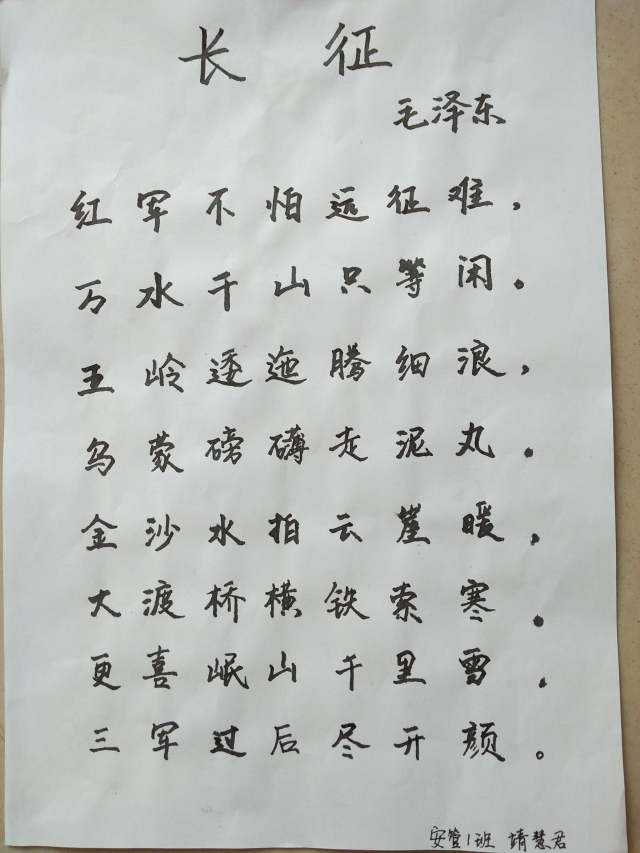 长征
毛泽东
红军不怕远征难，
万水千山只等闲。
王岭逶迤腾细浪，
乌蒙磅礴走泥丸。
金沙水拍云崖暖，
大渡桥横铁索寒。
更喜岷山千里雪，
三军过后尽开颜。
安管1班 靖慧君